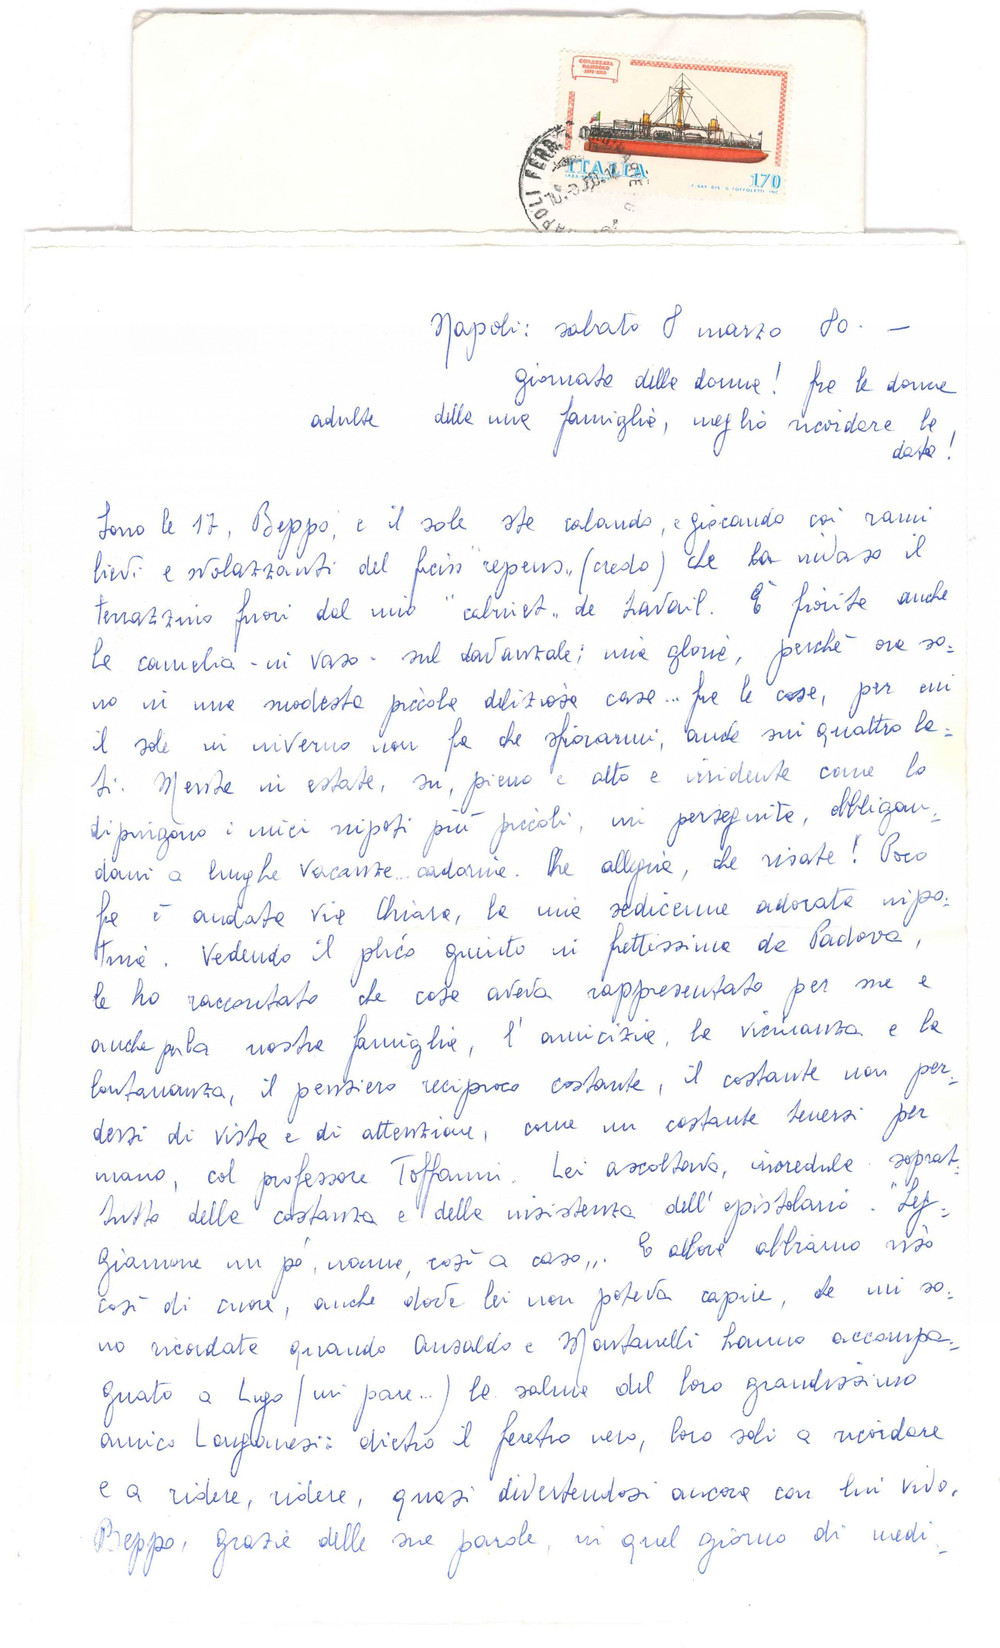 CORAZZATA
DANDOLO
ITALIA
170
NAPOLI FERR
Napoli: sabato 8 marzo 80. —
giornata delle donne! fra le donne
adulte della mia famiglia, meglio ricordare la
data!
Sono le 17, Beppo, e il sole sta calando, e giocando coi rami
lievi e svolazzanti del ficus "repens„ (credo) che ha invaso il
terrazzino fuori dal mio "cabinet„ de travail. È fiorita anche
la camelia - in vaso - sul davanzale; mia gloria, perchè ora so=
no in una modesta piccola deliziosa casa... fra le case, per cui
il sole in inverno non fa che sfiorarmi, anche sui quattro la=
ti. Mentre in estate, su, pieno e alto e irridente come lo
dipingono i miei nipoti più piccoli, mi perseguita, obbligan=
domi a lunghe vacanze... cadorine. Che allegria, che risate! Poco
fa è andata via Chiara, la mia sedicenne adorata nipo=
tina. Vedendo il plico giunto in frettissima da Padova,
le ho raccontato che cosa aveva rappresentato per me e
anche per la nostra famiglia, l'amicizia, la vicinanza e la
lontananza, il pensiero reciproco costante, il costante non per=
dersi di vista e di attenzione, come un costante tenersi per
mano, col professore Toffanin. Lei ascoltava, incredula soprat=
tutto della costanza e della insistenza dell'epistolario. "Leg=
giamone un pó, nonna, così a caso„. E allora abbiamo riso
così di cuore, anche dove lei non poteva capire, che mi so=
no ricordata quando Ansaldo e Montanelli hanno accompa=
gnato a Lugo (mi pare...) la salma del loro grandissimo
amico Longanesi: dietro il feretro nero, loro soli a ricordare
e a ridere, ridere, quasi divertendosi ancora con lui vivo.
Beppo, grazie delle sue parole, in quel giorno di medi=